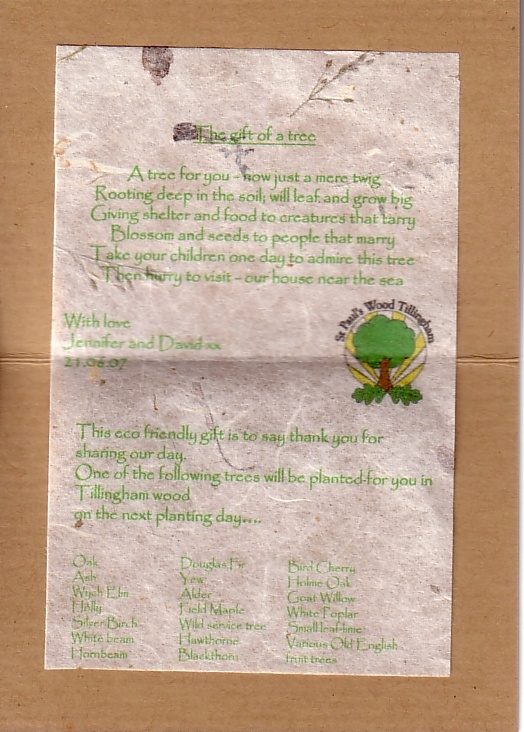 The gift of a tree
A tree for you - now just a mere twig
Rooting deep in the soil; will leaf and grow big
Giving shelter and food to creatures that tarry
Blossom and seeds to people that marry
Take your children one day to admire this tree
Then hurry to visit - our house near the sea
With love
Jennifer and David xx
21.06.07
St Paul's Wood Tillingham
This eco friendly gift is to say thank you for
sharing our day.
One of the following trees will be planted for you in
Tillingham wood
on the next planting day....
Oak
Ash
Wych Elm
Holly
Silver Birch
White beam
Hornbeam
Douglas Fir
Yew
Alder
Field Maple
Wild service tree
Hawthorne
Blackthorn
Bird Cherry
Holme Oak
Goat Willow
White Poplar
Small leaf lime
Various Old English
fruit trees